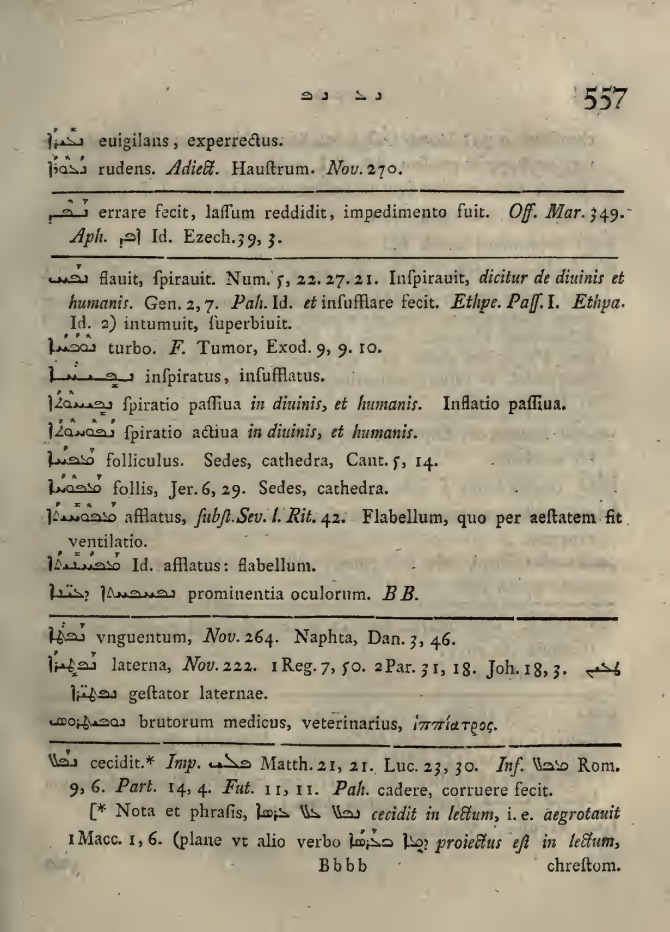 ܢܥ ܢܦ 557
ܢܥܝܪܐ euigilans, experrectus.
ܢܥܘܪܐ rudens. Adiect. Hauſtrum. Nov. 270.
errare fecit, laſſum reddidit, impedimento fuit. Off. Mar. 349.
Aph. Id. Ezech. 39, 3.
ܢܦܚ flauit, ſpirauit. Num. 5, 22. 27. 21. Inſpirauit, dicitur de diuinis et
humanis. Gen. 2, 7. Pah. Id. et inſufflare fecit. Ethpe. Paſſ. I. Ethpa.
Id. 2) intumuit, ſuperbiuit.
ܢܦܚܐ turbo. F. Tumor, Exod. 9, 9. 10.
ܢܦܝܚܐ inſpiratus, inſufflatus.
ܢܦܝܚܘܬܐ ſpiratio paſſiua in diuinis, et humanis. Inflatio paſſiua.
ܢܦܘܚܘܬܐ ſpiratio actiua in diuinis, et humanis.
ܡܦܚܐ folliculus. Sedes, cathedra, Cant. 5, 14.
ܡܦܘܚܐ follis, Jer. 6, 29. Sedes, cathedra.
ܡܦܘܚܝܬܐ afflatus, ſubſt. Sev. l. Rit. 42. Flabellum, quo per aeſtatem fit
ventilatio.
Id. afflatus: flabellum.
prominentia oculorum. BB.
ܢܦܛܐ vnguentum, Nov. 264. Naphta, Dan. 3, 46.
ܢܦܛܝܪܐ laterna, Nov. 222. 1 Reg. 7, 50. 2 Par. 31, 18. Joh. 18, 3. ܛܥܝܢ
ܢܦܛܝܪܐ geſtator laternae.
brutorum medicus, veterinarius, ἱππίατρος.
ܢܦܠ cecidit.* Imp. ܦܠܘ Matth. 21, 21. Luc. 23, 30. Inf. ܡܦܠ Rom.
9, 6. Part. 14, 4. Fut. 11, 11. Pah. cadere, corruere fecit.
[* Nota et phraſis, ܢܦܠ ܥܠ ܥܪܣܐ cecidit in lectum, i. e. aegrotauit
1 Macc. 1, 6. (plane vt alio verbo ܪܡܐ ܒܥܪܣܐ proiectus eſt in lectum,
Bbbb chreſtom.